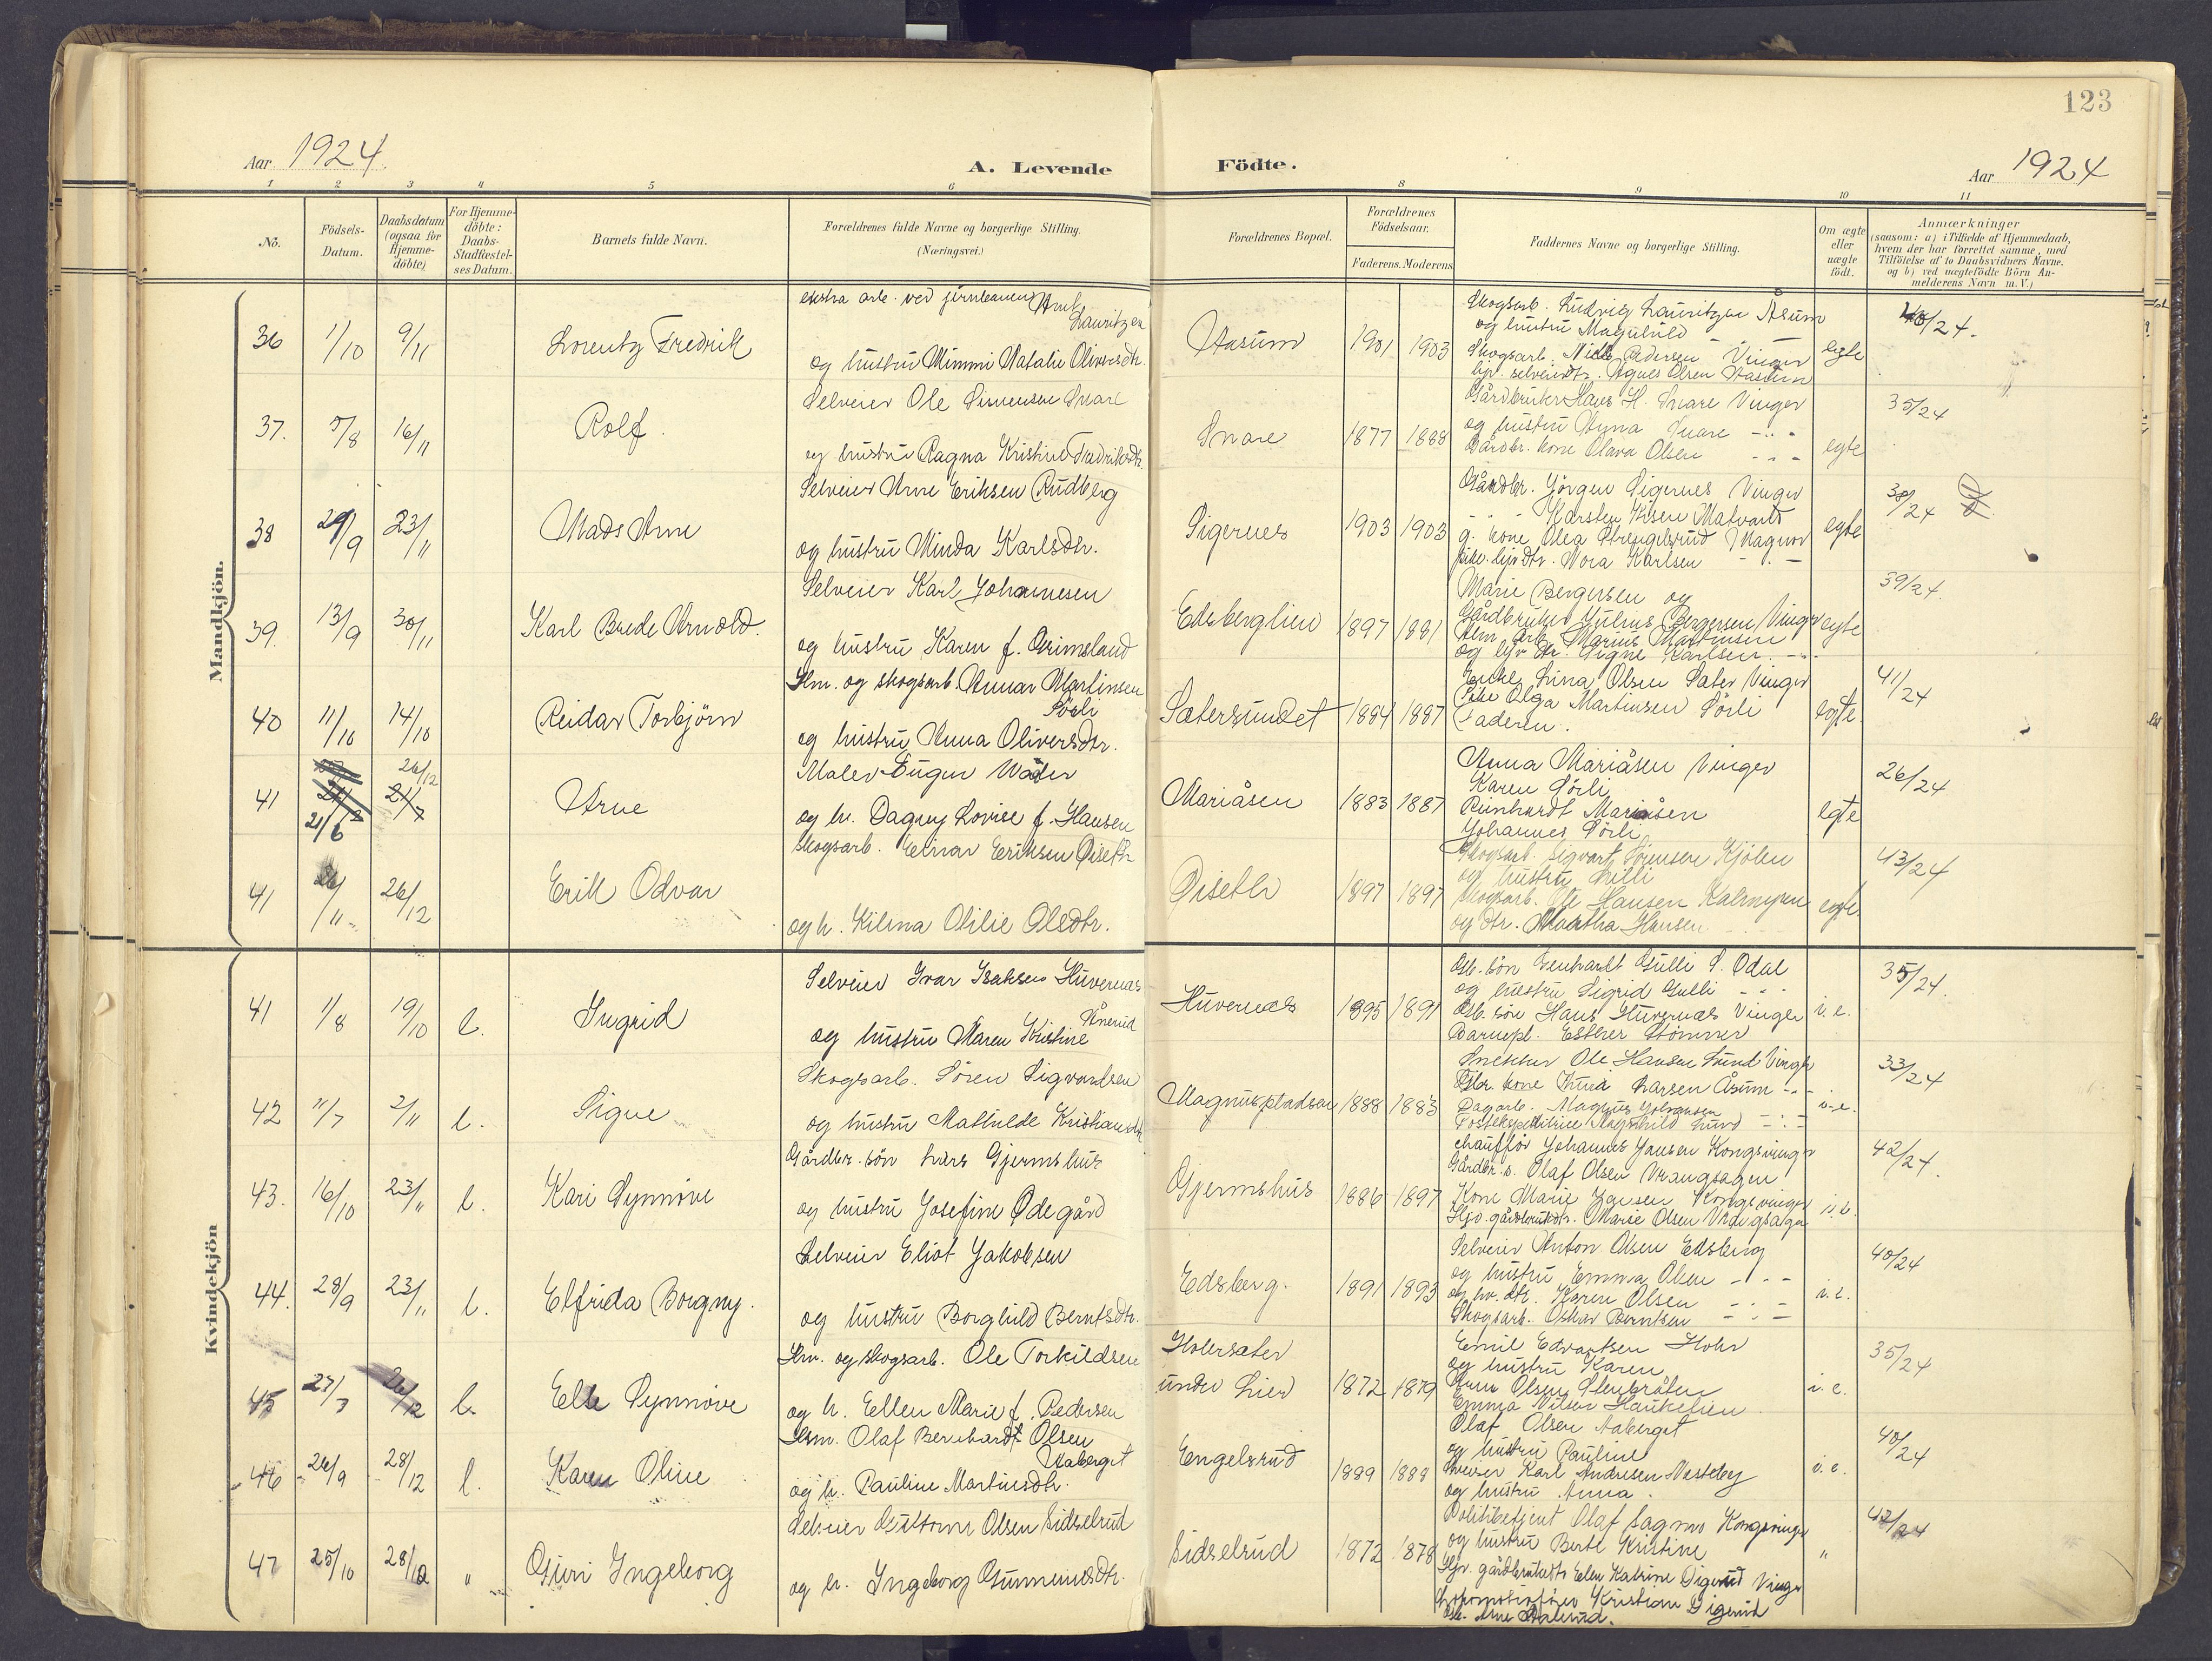 123
Aar 1924
A. Levende
Födte.
Aar 1924
1 2 3 4 5 6 8 9 10 11
No.
Födsels-Datum.
Daabsdatum (ogsaa for Hjemme-döbte)
For Hjemme-döbte: Daabs-Stadfæstel-ses Datum.
Barnets fulde Navn.
Forældrenes fulde Navne og borgerlige Stilling. (Næringsvei.)
Forældrenes Bopæl.
Forældrenes Födselsaar.
Faderens. Moderens
Faddernes Navne og borgerlige Stilling.
Om ægte eller uægte födt.
Anmærkninger
(saasom: a) i Tilfælde af Hjemmedaab,
hvem der har forrettet samme, med
Tilföielse af to Daabsvidners Navne.
og b) ved uægtefödte Börn An-
melderens Navn m. V.)
Mandkjön.
36 1/10 9/11 Lorentz Fredrik
ekstra arb. ved jernbanen
Lauritzen
og hustru Mimmi Natalie Oliversdtr.
Aasum 1901 1903
Skogsarb. Ludvig Lauritzen Åsum
og hustru Magnhild
Skogsarb. Nils Pedersen Vinger
hjv. selveierdtr. Agnes Olsen Aasum
egte
37. 5/8 16/11 Rolf.
Selveier Ole Simensen Snare
og hustru Ragna Kristine Fredriksdtr.
Snare 1877 1888
Gårdbruker Hans H. Snare Vinger
og hustru Anna Snare
Gårdbr. kone Olava Olsen
egte
35/24
38 29/9 23/11 Mads Arne
Selveier Arne Eriksen Rudberg
og hustru Minda Karlsdtr.
Sigernes 1903 1903
Gårdbr. Jörgen Sigernes Vinger
Karsten Matvand
g. kone Olea Strengelsrud Magnor
pike. hjv dtr. Nora Karlsen
egte
38/24
39. 13/9 30/11 Karl Brede Arnold.
Selveier Karl Johannesen
og hustru Karen f. Grimsland
Edsberglien 1897 1891
Marie Bergersen og
Gårdbruker Julius Bergersen Vinger
Marius Martinsen
og hjv dtr. Signe Karlsen
egte
39/24.
40 11/10 14/10 Reidar Torbjörn
Hm. og skogsarb. Annar Martinsen
Sörli
og hustru Anna Oliversdtr.
Sætersundet 1884 1887
Enke Lina Olsen Sæter Vinger
Pike Olga Martinsen Sörli
Faderen.
egte.
41/24
41 21/6 26/12 Arne
Maler Eugen
og h. Dagny Lovise f. Hansen
Mariåsen 1883 1887
Anna Mariåsen Vinger
Karen Sörli
Reinhardt Mariåsen
Johannes Sörli
egte
26/24
41 26/11 26/12 Erik Odvar
Skogsarb. Einar Eriksen Øiseth
og h. Kilma Otilie Olsdtr.
Øiseth 1897 1897
Skogsarb. Sigvart Sörensen Kjölen
og hustru Milli
Skogsarb. Ole Hansen Kalmyren
og dtr. Martha Hansen
egte.
43/24
Kvindekjön
41 1/8 19/10 l. Ingrid
Selveier Ivar Isaksen Huvernæs
og hustru Maren Kristine
Huvernæs 1895 1891
Gb. sön Genhardt Gulli S. Odal
og hustru Sigrid Gulli
Gb. sön Hans Huvernæs Vinger
Barnepl. Esther Stömner
i. e.
35/24.
42 11/7 2/11 l. Signe
Skogsarb. Sören Sigvartsen
og hustru Mathilde Kristiansdtr
Magnuspladsen 1888 1883
Snekker Ole Hansen Lund Vinger
Gbr. kone Larsen Åsum
Dagarb. Magnus Johansen
Magnhild Lund
i. e.
33/24
43. 16/10 23/11 l. Kari Synnöve
Gårdbr. sön Lars Gjermshus
og hustru Josefine Ødegård
Gjermshus 1886 1897
chaufför Johannes Jansen Kongsvinger
Gårdbr. s. Olaf Olsen Vrangsagen
Kone Marie Jansen Kongsvinger
Hjv. gårdbrukdtr. Marie Olsen Vrangsagen
i. e.
42/24.
44. 28/9 23/11 l. Elfrida Borgny.
Selveier Eliot Jakobsen
og hustru Borghild Berntsdtr.
Edsberg. 1891 1893
Selveier Anton Olsen Edsberg
og hustru Emma Olsen
og hv. dtr. Karen Olsen
Skogsarb. Oskar Berntsen
i. e.
40/24
45 27/7 26/12 l. Else Synnöve
Hm. og skogsarb. Ole Torkildsen
og h. Ellen Marie f. Pedersen
Holersæter
under Lier 1872 1879
Emil Edvartsen Holer
og hustru Karen
Olsen Stenbråten
Emma Nilsen Haukelien
i. e.
35/24
46 26/9 28/12 l. Karen Oline
Hm. Olaf Bernhardt Olsen
Aaberget
og h. Pauline Martinsdtr.
Engelsrud 1889 1888
Olaf Olsen Aaberget
og hustru Pauline
Selveier Karl Andresen Næsteby
og hustru Anna.
i. e.
40/24
47 25/10 28/12 " Guri Ingeborg
Selveier Guttorm Olsen Sidselrud
og h. Ingeborg Gunnerudsdtr.
Sidselrud 1872 1878
Politibetjent Olaf Sagmo Kongsvinger
og hustru Berte Kristine
Hjv. gårdbrukdtr Elen Katrine Digerud Vinger
Lokomotivförer Kristian Digerud
Arne
"
42/24